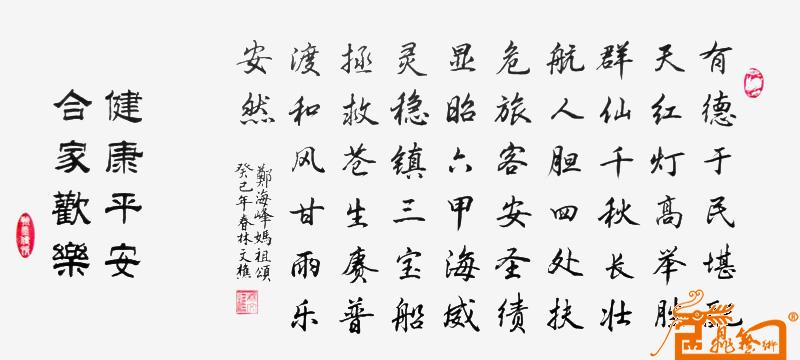 有德于民堪配
天红灯高举胜
群仙千秋长壮
航人胆四处扶
危旅客安圣绩
显昭六甲海威
灵稳镇三宝船
拯救苍生赓普
渡和风甘雨乐
安然
鄭海峰媽祖頌
癸己年春林文樵
健康平安
合家歡樂